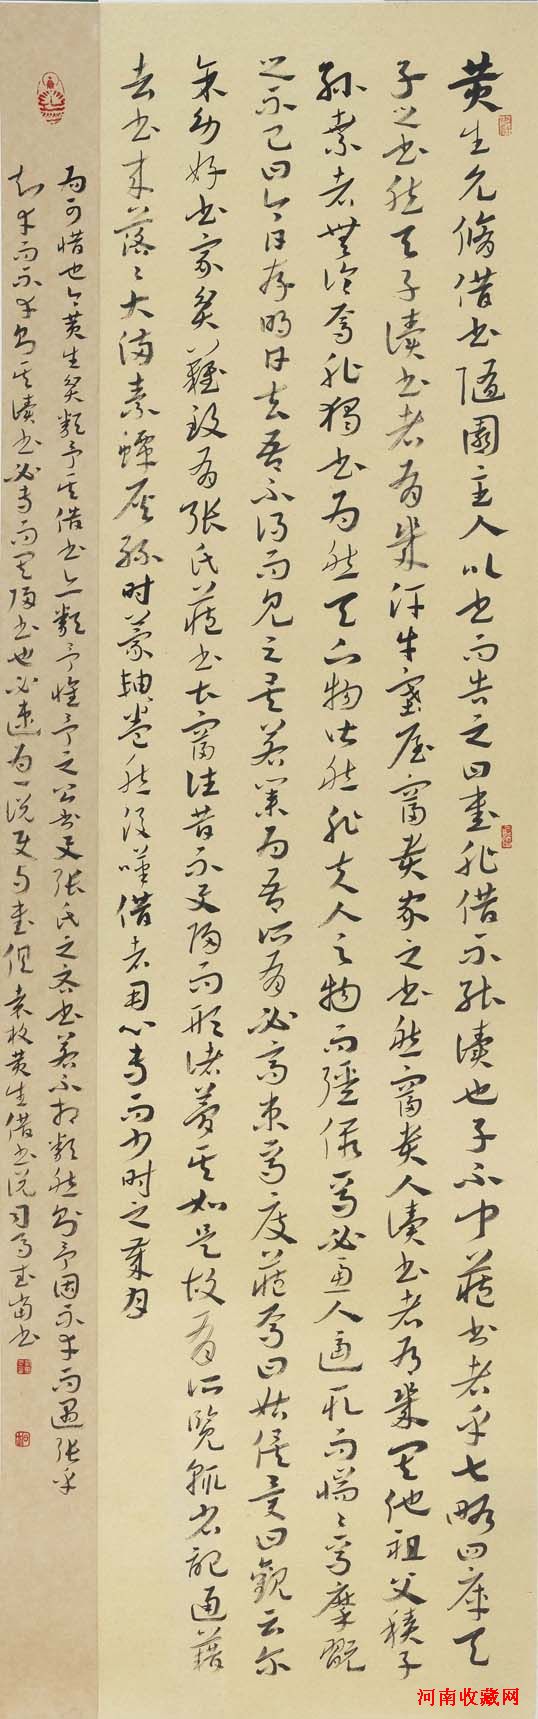 黄生允修借书随園主人以书而告之曰書非借不能读也子不闻藏书者乎七略四库天
子之书然天子读书者有几汗牛塞屋富貴家之书然富貴人读书者有几其他祖父積子
孙棄者無论焉非獨书为然天下物皆然非夫人之物而强假焉必虑人逼取而惴〻焉摩翫
之不已曰今日存明日去吾不得而见之矣若業为吾所有必高束焉庋藏焉曰姑俟異日觀云尔
余幼好书家贫難致有張氏藏书甚富往借不与归而形诸夢其如是故有所覽輒省記通籍
去书来落〻大满素蟫灰絲时蒙軸卷然後嘆借者用心专而少时之歲月
为可惜也今黄生贫類予其借书亦類予惟予之公书与張氏之吝书若不相類然则予固不幸而遇張乎
知幸而不幸则其读书必专而其归书也必速为一说使与書俱 袁枚黄生借书说 司马武當书
河南收藏网